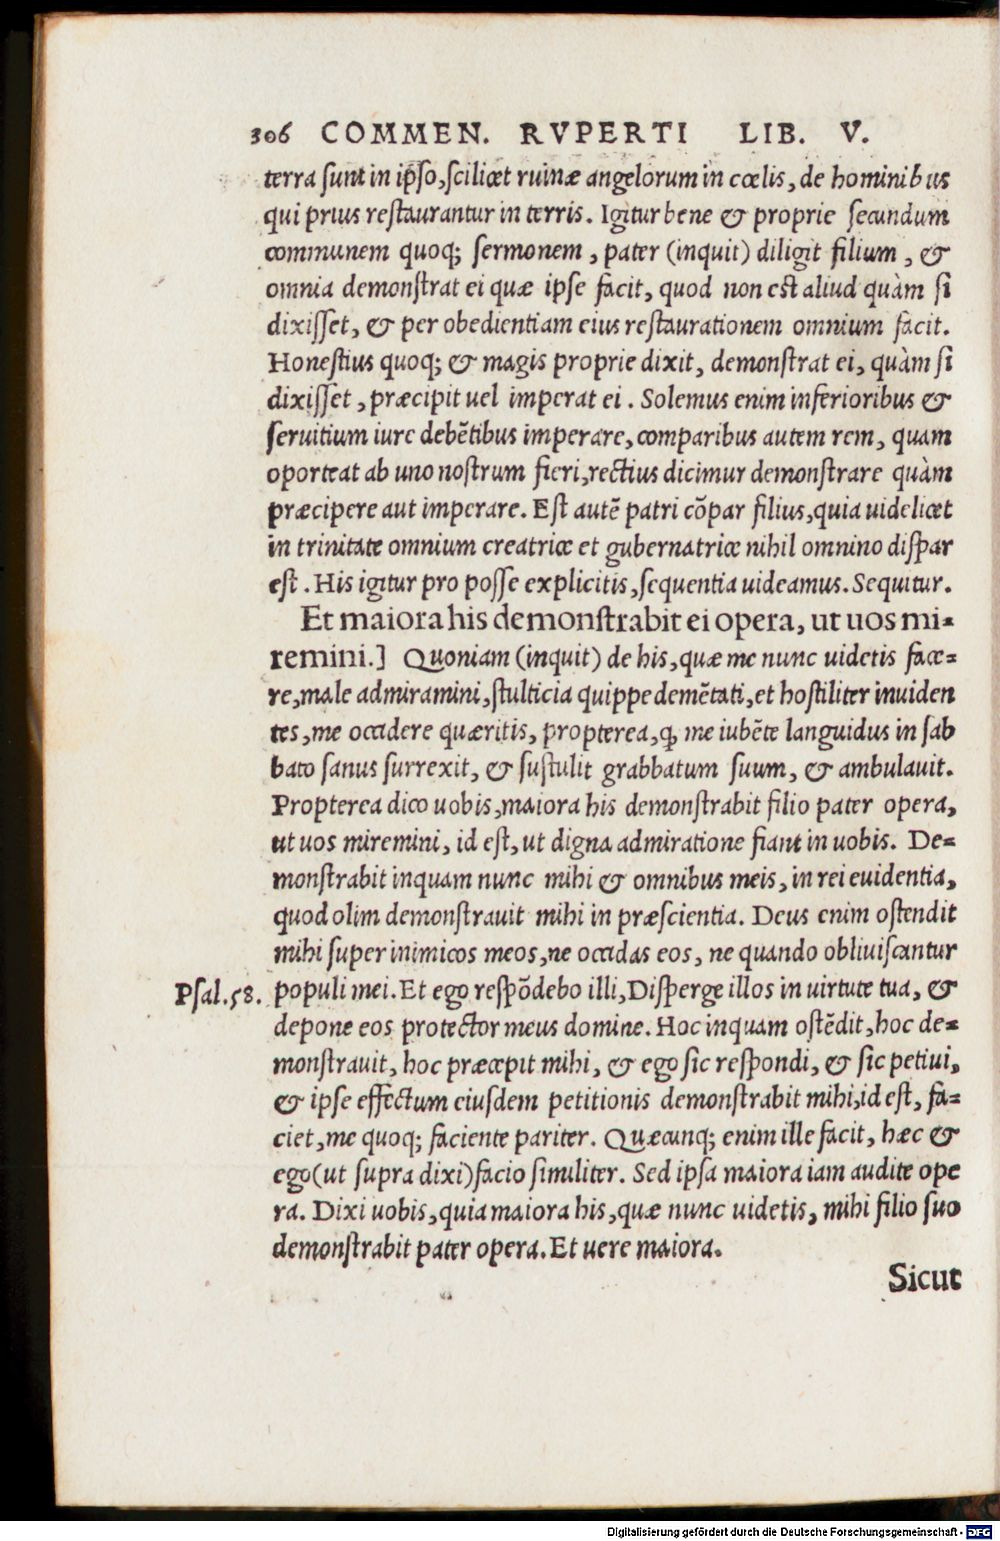 306 COMMEN. RVPERTI LIB. V.
terra sunt in ipso, scilicet ruinæ angelorum in cœlis, de hominibus
qui prius restaurantur in terris. Igitur bene & proprie secundum
communem quoq; sermonem, pater (inquit) diligit filium, &
omnia demonstrat ei quæ ipse facit, quod non est aliud quàm si
dixisset, & per obedientiam eius restaurationem omnium facit.
Honestius quoq; & magis proprie dixit, demonstrat ei, quàm si
dixisset, præcipit uel imperat ei. Solemus enim inferioribus &
seruitium iure debẽtibus imperare, comparibus autem rem, quam
oporteat ab uno nostrum fieri, rectius dicimur demonstrare quàm
præcipere aut imperare. Est autẽ patri cõpar filius, quia uidelicet
in trinitate omnium creatrice et gubernatrice nihil omnino dispar
est. His igitur pro posse explicitis, sequentia uideamus. Sequitur.
Et maiora his demonstrabit ei opera, ut uos mi-
remini.] Quoniam (inquit) de his, quæ me nunc uidetis face-
re, male admiramini, stulticia quippe demẽtati, et hostiliter inuiden
tes, me occidere quæritis, propterea, ꝙ me iubẽte languidus in sab
bato sanus surrexit, & sustulit grabbatum suum, & ambulauit.
Propterea dico uobis, maiora his demonstrabit filio pater opera,
ut uos miremini, id est, ut digna admiratione fiant in uobis. De-
monstrabit inquam nunc mihi & omnibus meis, in rei euidentia,
quod olim demonstrauit mihi in præscientia. Deus enim ostendit
mihi super inimicos meos, ne occidas eos, ne quando obliuiscantur
Psal.58. populi mei. Et ego respõdebo illi, Disperge illos in uirtute tua, &
depone eos protector meus domine. Hoc inquam ostẽdit, hoc de-
monstrauit, hoc præcepit mihi, & ego sic respondi, & sic petiui,
& ipse effectum eiusdem petitionis demonstrabit mihi, id est, fa-
ciet, me quoq; faciente pariter. Quæcunq; enim ille facit, hæc &
ego (ut supra dixi) facio similiter. Sed ipsa maiora iam audite ope
ra. Dixi uobis, quia maiora his, quæ nunc uidetis, mihi filio suo
demonstrabit pater opera. Et uere maiora.
Sicut
Digitalisierung gefördert durch die Deutsche Forschungsgemeinschaft - DFG